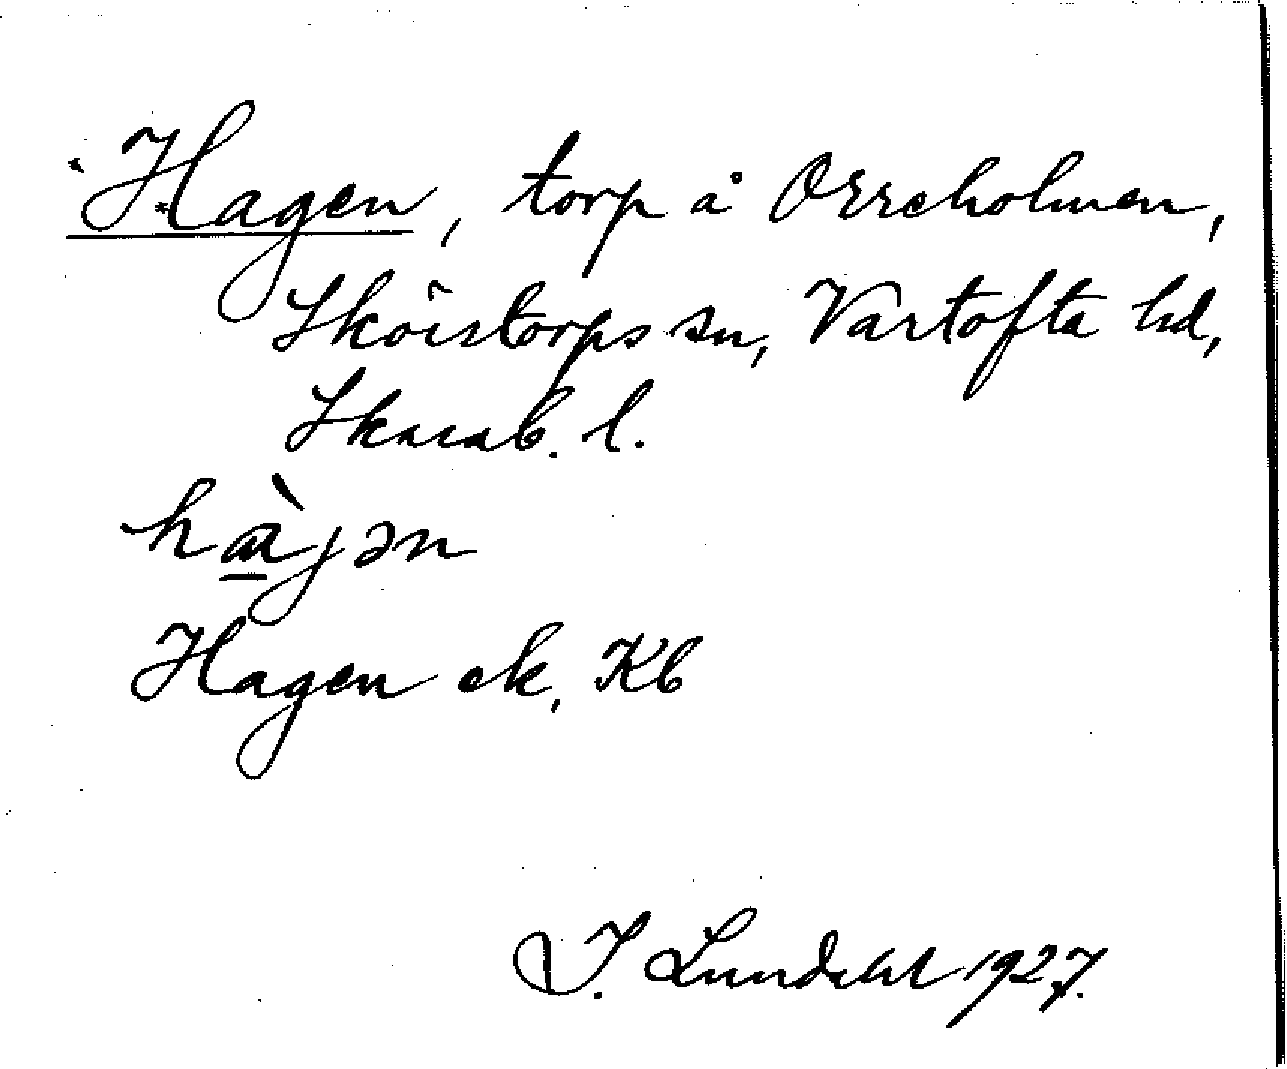 Hagen, torp å Orreholmen,
Skörstorps sn, Vartofta hd,
Skarab. l.
hàjən
Hagen ek, Kb
I. Lundahl 1927.